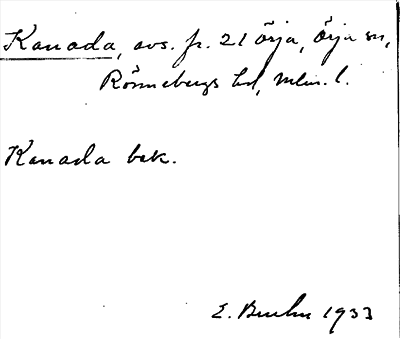 Kanada, avs. fr. 21 Örja, Örja sn,
Rönnebergs hd, Mlm. l.
Kanada bak.
E. Bruhn 1933